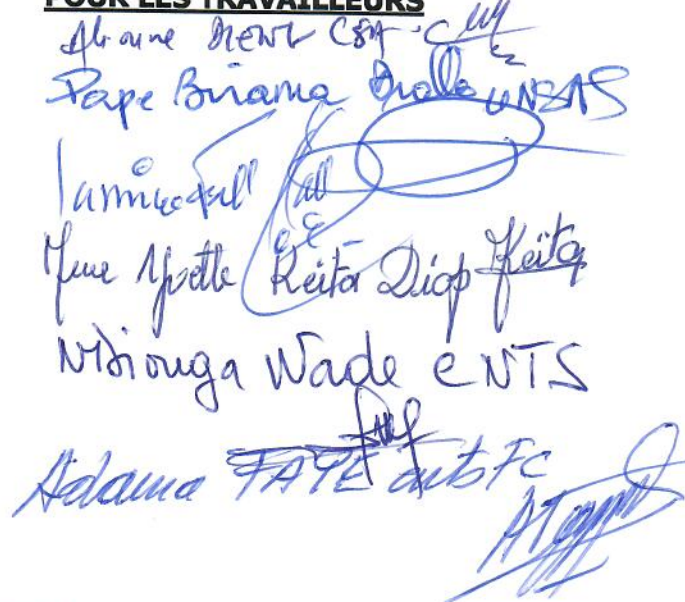 POUR LES TRAVAILLEURS
Alioune CSA
Pape Birama Diallo UNSAS
Lamine Fall
Mme Yvette Keita Diop Keita
Ndiouga Wade CNTS
Adama FAYE cnts FC